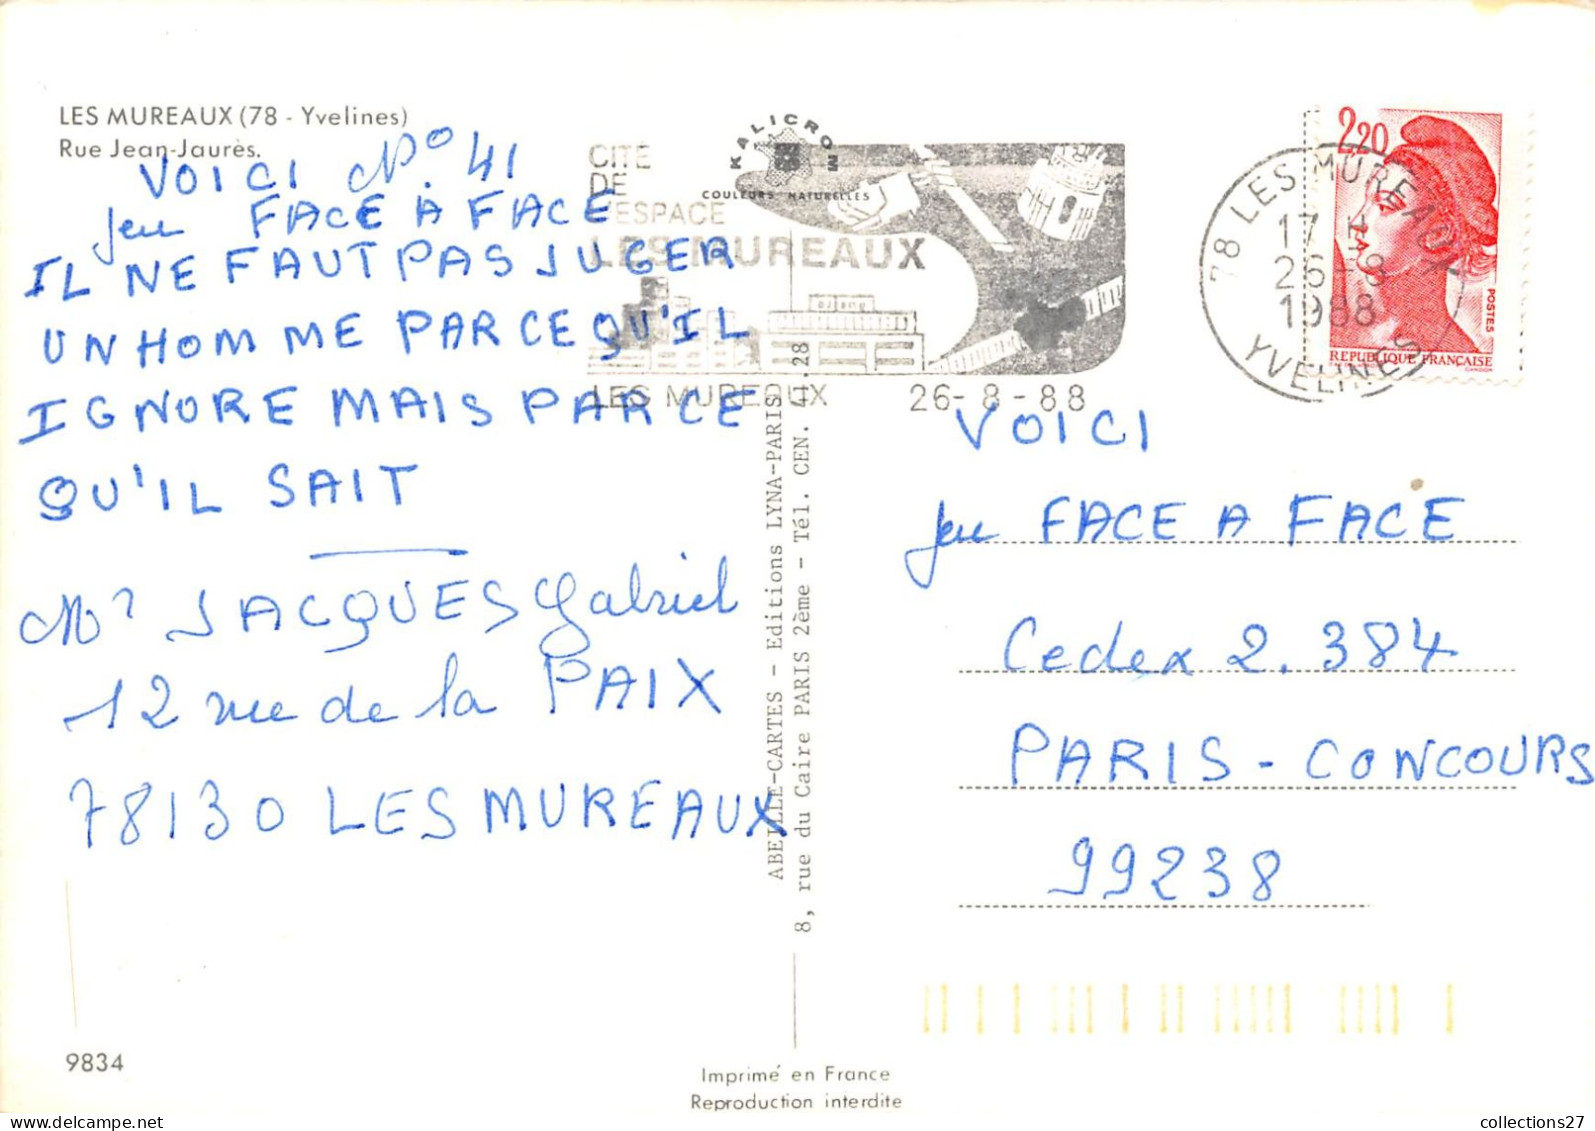 LES MUREAUX (78 - Yvelines)
Rue Jean-Jaurès.
VOICI N° 41
jeu FACE A FACE
IL NE FAUT PAS JUGER
UN HOMME PARCE QU'IL
IGNORE MAIS PARCE
QU'IL SAIT
Mr JACQUES Gabriel
12 rue de la PAIX
78130 LES MUREAUX
9834
KALICROM
COULEURS NATURELLES
CITE
DE
L'ESPACE
LES MUREAUX
LES MUREAUX 26-8-88
ABEILLE-CARTES - Editions LYNA-PARIS
8, rue du Caire PARIS 2ème - Tél. CEN. 41.28
Imprimé en France
Reproduction interdite
2,20
POSTES
REPUBLIQUE FRANÇAISE
GANDON
78 LES MUREAUX
17 H
26-8
1988
YVELINES
VOICI
jeu FACE A FACE
Cedex 2.384
PARIS - CONCOURS
99238
collections27